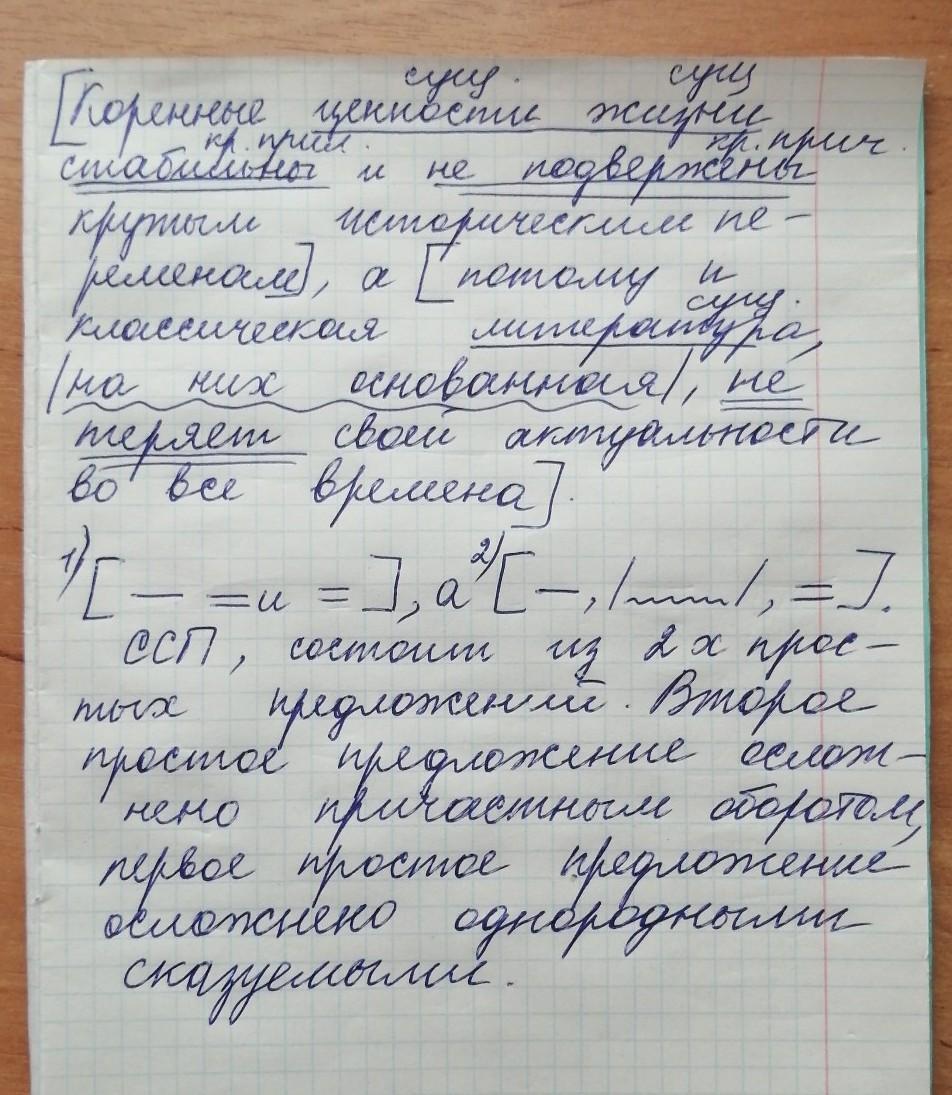 сущ. сущ
[Коренные ценности жизни
кр.прил. кр.прич.
стабильны и не подвержены
крутым историческим пе-
ременам], а [потому и
сущ.
классическая литература,
/на них основанная/, не
теряет своей актуальности
во все времена].
1) [— = и =], а 2) [—, /﹏﹏/, =].
ССП, состоит из 2х прос-
тых предложений. Второе
простое предложение ослож-
нено причастным оборотом,
первое простое предложение
осложнено однородными
сказуемыми.